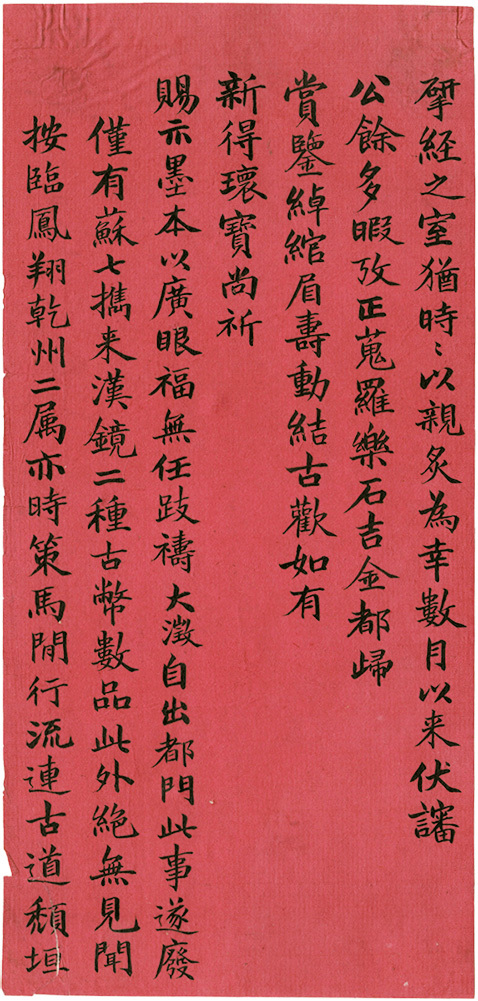 揅經之室猶時〻以親炙為幸數月以来伏讅
公餘多暇攷正蒐羅樂石吉金都歸
賞鑒綽綰眉壽動結古歡如有
新得瓌寶尚祈
賜示墨本以廣眼福無任跂禱大澂自出都門此事遂廢
僅有蘇七攜来漢鏡二種古幣數品此外絶無見聞
按臨鳳翔乾州二属亦時策馬閒行流連古道頹垣